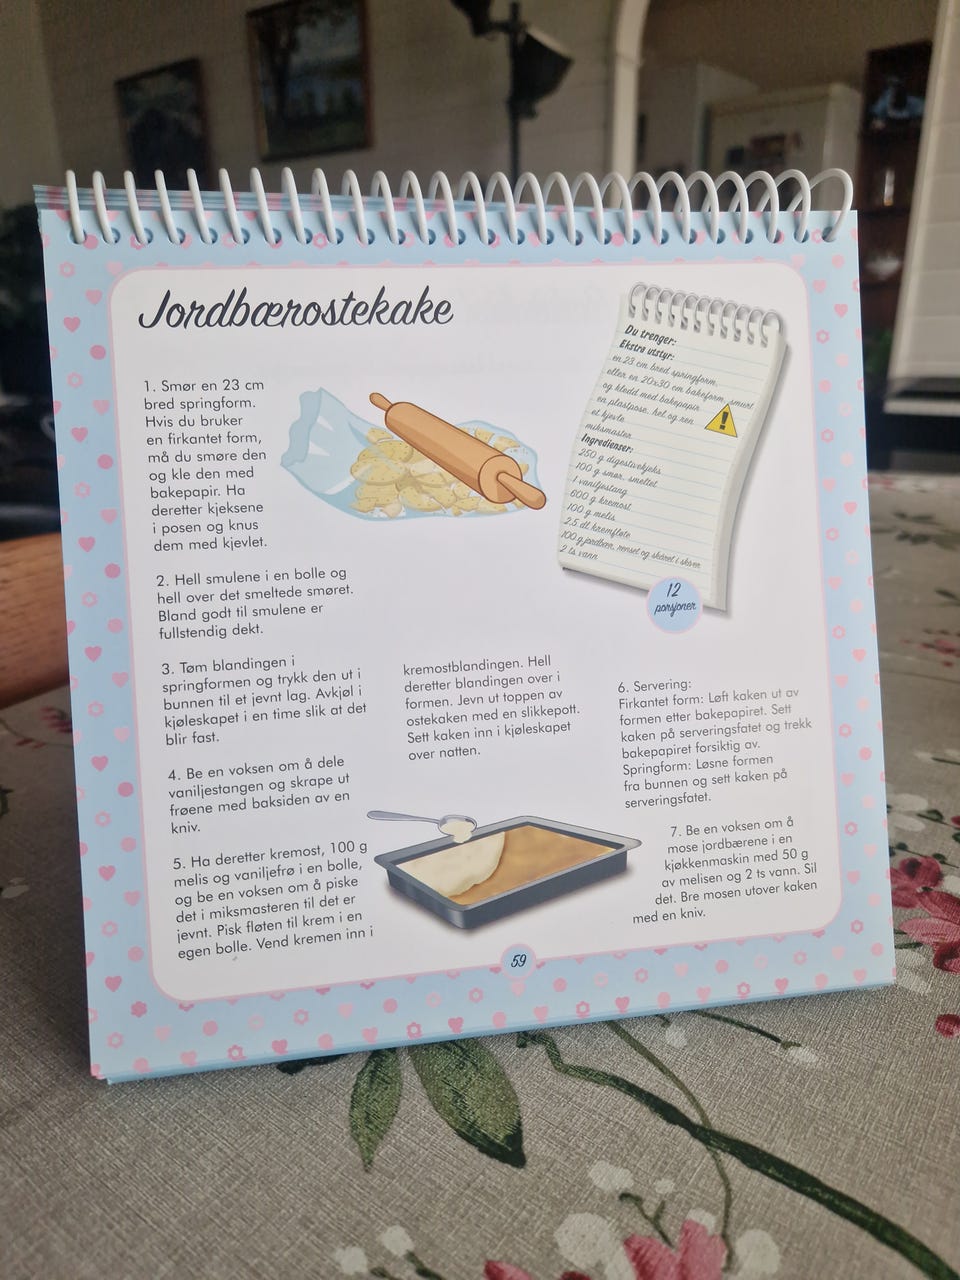 Jordbærostekake
Du trenger:
Ekstra utstyr:
en 23 cm bred springform,
eller en 20x30 cm bakeform, smurt
og kledd med bakepapir
en plastpose, hel og ren
et kjevle
miksmaster
Ingredienser:
250 g digestivekjeks
100 g smør, smeltet
1 vaniljestang
600 g kremost
100 g melis
2.5 dl kremfløte
100 g jordbær, renset og skåret i skiver
2 ts vann
12
porsjoner
1. Smør en 23 cm
bred springform.
Hvis du bruker
en firkantet form,
må du smøre den
og kle den med
bakepapir. Ha
deretter kjeksene
i posen og knus
dem med kjevlet.
2. Hell smulene i en bolle og
hell over det smeltede smøret.
Bland godt til smulene er
fullstendig dekt.
3. Tøm blandingen i
springformen og trykk den ut i
bunnen til et jevnt lag. Avkjøl i
kjøleskapet i en time slik at det
blir fast.
4. Be en voksen om å dele
vaniljestangen og skrape ut
frøene med baksiden av en
kniv.
5. Ha deretter kremost, 100 g
melis og vaniljefrø i en bolle,
og be en voksen om å piske
det i miksmasteren til det er
jevnt. Pisk fløten til krem i en
egen bolle. Vend kremen inn i
kremostblandingen. Hell
deretter blandingen over i
formen. Jevn ut toppen av
ostekaken med en slikkepott.
Sett kaken inn i kjøleskapet
over natten.
6. Servering:
Firkantet form: Løft kaken ut av
formen etter bakepapiret. Sett
kaken på serveringsfatet og trekk
bakepapiret forsiktig av.
Springform: Løsne formen
fra bunnen og sett kaken på
serveringsfatet.
7. Be en voksen om å
mose jordbærene i en
kjøkkenmaskin med 50 g
av melisen og 2 ts vann. Sil
det. Bre mosen utover kaken
med en kniv.
59